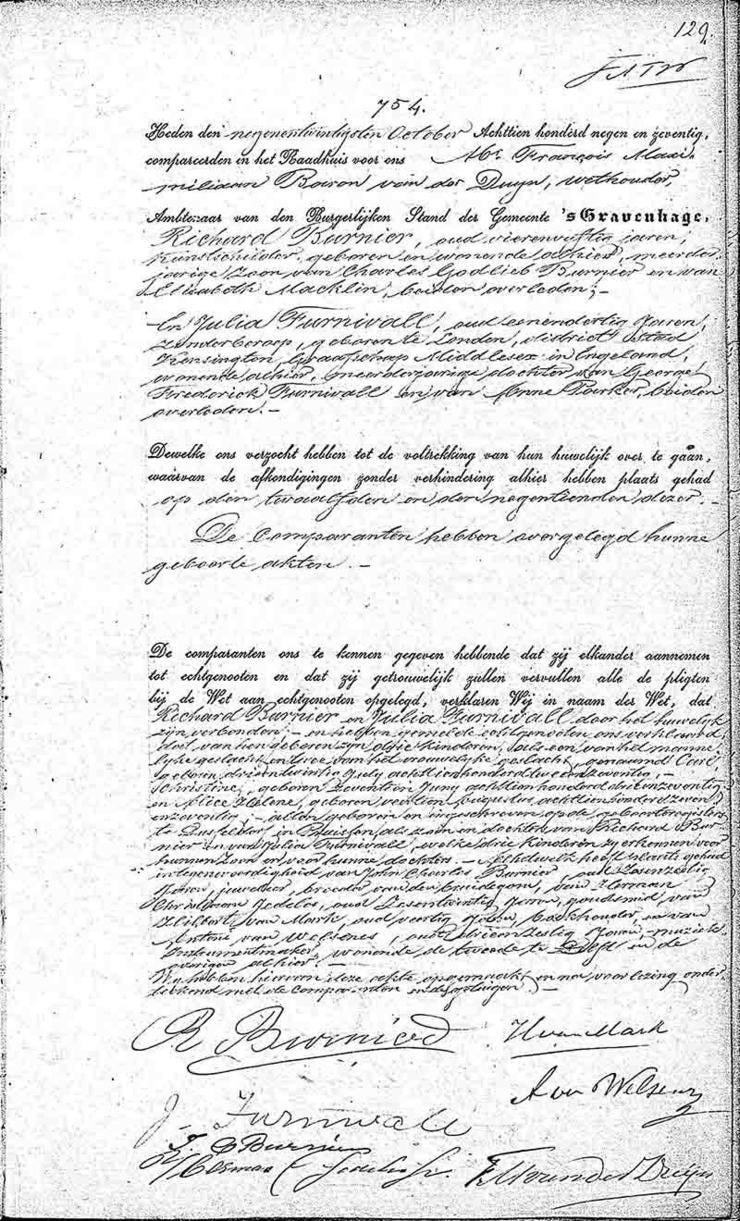 129.
754.
Heden den negenentwintigsten October Achttien honderd negen en zeventig,
compareerden in het Raadhuis voor ons Mr. François Maxi-
miliaan Baron van der Duyn, wethouder,
Ambtenaar van den Burgerlijken Stand der Gemeente 's Gravenhage,
Richard Burnier, oud vierenvijftig jaren,
kunstschilder, geboren en wonende alhier, meerder-
jarige zoon van Charles Godlieb Burnier en van
Elisabeth Macklin, beiden overleden; —
En Julia Furnivall, oud eenendertig Jaren,
zonder beroep, geboren te Londen, district Stad
Kensington, Graafschap Middlesex in Engeland,
wonende alhier, meerderjarige dochter van George
Frederick Furnivall en van Anne Parker, beiden
overleden. —
Dewelke ons verzocht hebben tot de voltrekking van hun huwelijk over te gaan,
waarvan de afkondigingen zonder verhindering alhier hebben plaats gehad
op den twaalfden en den negentienden dezer. —
De Comparanten hebben overgelegd hunne
geboorte akten. —
De comparanten ons te kennen gegeven hebbende dat zij elkander aannemen
tot echtgenooten en dat zij getrouwelijk zullen vervullen alle de pligten
bij de Wet aan echtgenooten opgelegd, verklaren Wij in naam der Wet, dat
Richard Burnier en Julia Furnivall door het huwelijk
zijn verbonden; — en hebben gemelde echtgenooten ons verklaard
dat van hen geboren zijn drie kinderen, als een van het manne-
lijke geslacht en twee van het vrouwelijke geslacht, genaamd Carl
geboren drieentwintig July achttienhonderd tweeenzeventig, —
Christine, geboren zeventien Juny achttienhonderd drieenzeventig
en Alice Helene, geboren veertien Augustus achttienhonderd zeven
enzeventig; — allen geboren en ingeschreven op de geboorteregisters
te Dusseldorf in Pruissen, als zoon en dochters van Richard Bur-
nier en van Julia Furnivall, welke drie kinderen zij erkennen voor
hunnen zoon en voor hunne dochters. —
in tegenwoordigheid van John Charles Burnier, oud zesenzestig
Jaren, juwelier, broeder van den bruidegom, van Herman
Christiaan Jedeloo, oud zesentwintig Jaren, goudsmid, van
van Mark, oud veertig Jaren, boekhouder, en van
Antonie van Welsenes, oud drieenzestig Jaren, muziek
Instrumentmaker, wonende de tweede te Delft en de
overigen alhier.
Wij hebben hiervan deze akte opgemaakt en na voorlezing onder-
teekend met de Comparanten en de getuigen. —
R Burnier
H van Mark
A van Welsenes
J. Furnivall
J. C Burnier
F M van der Duyn